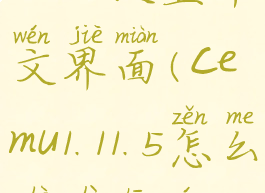 wén jiè miàn
文界面(ce
zěn me
mu1.11.5怎么